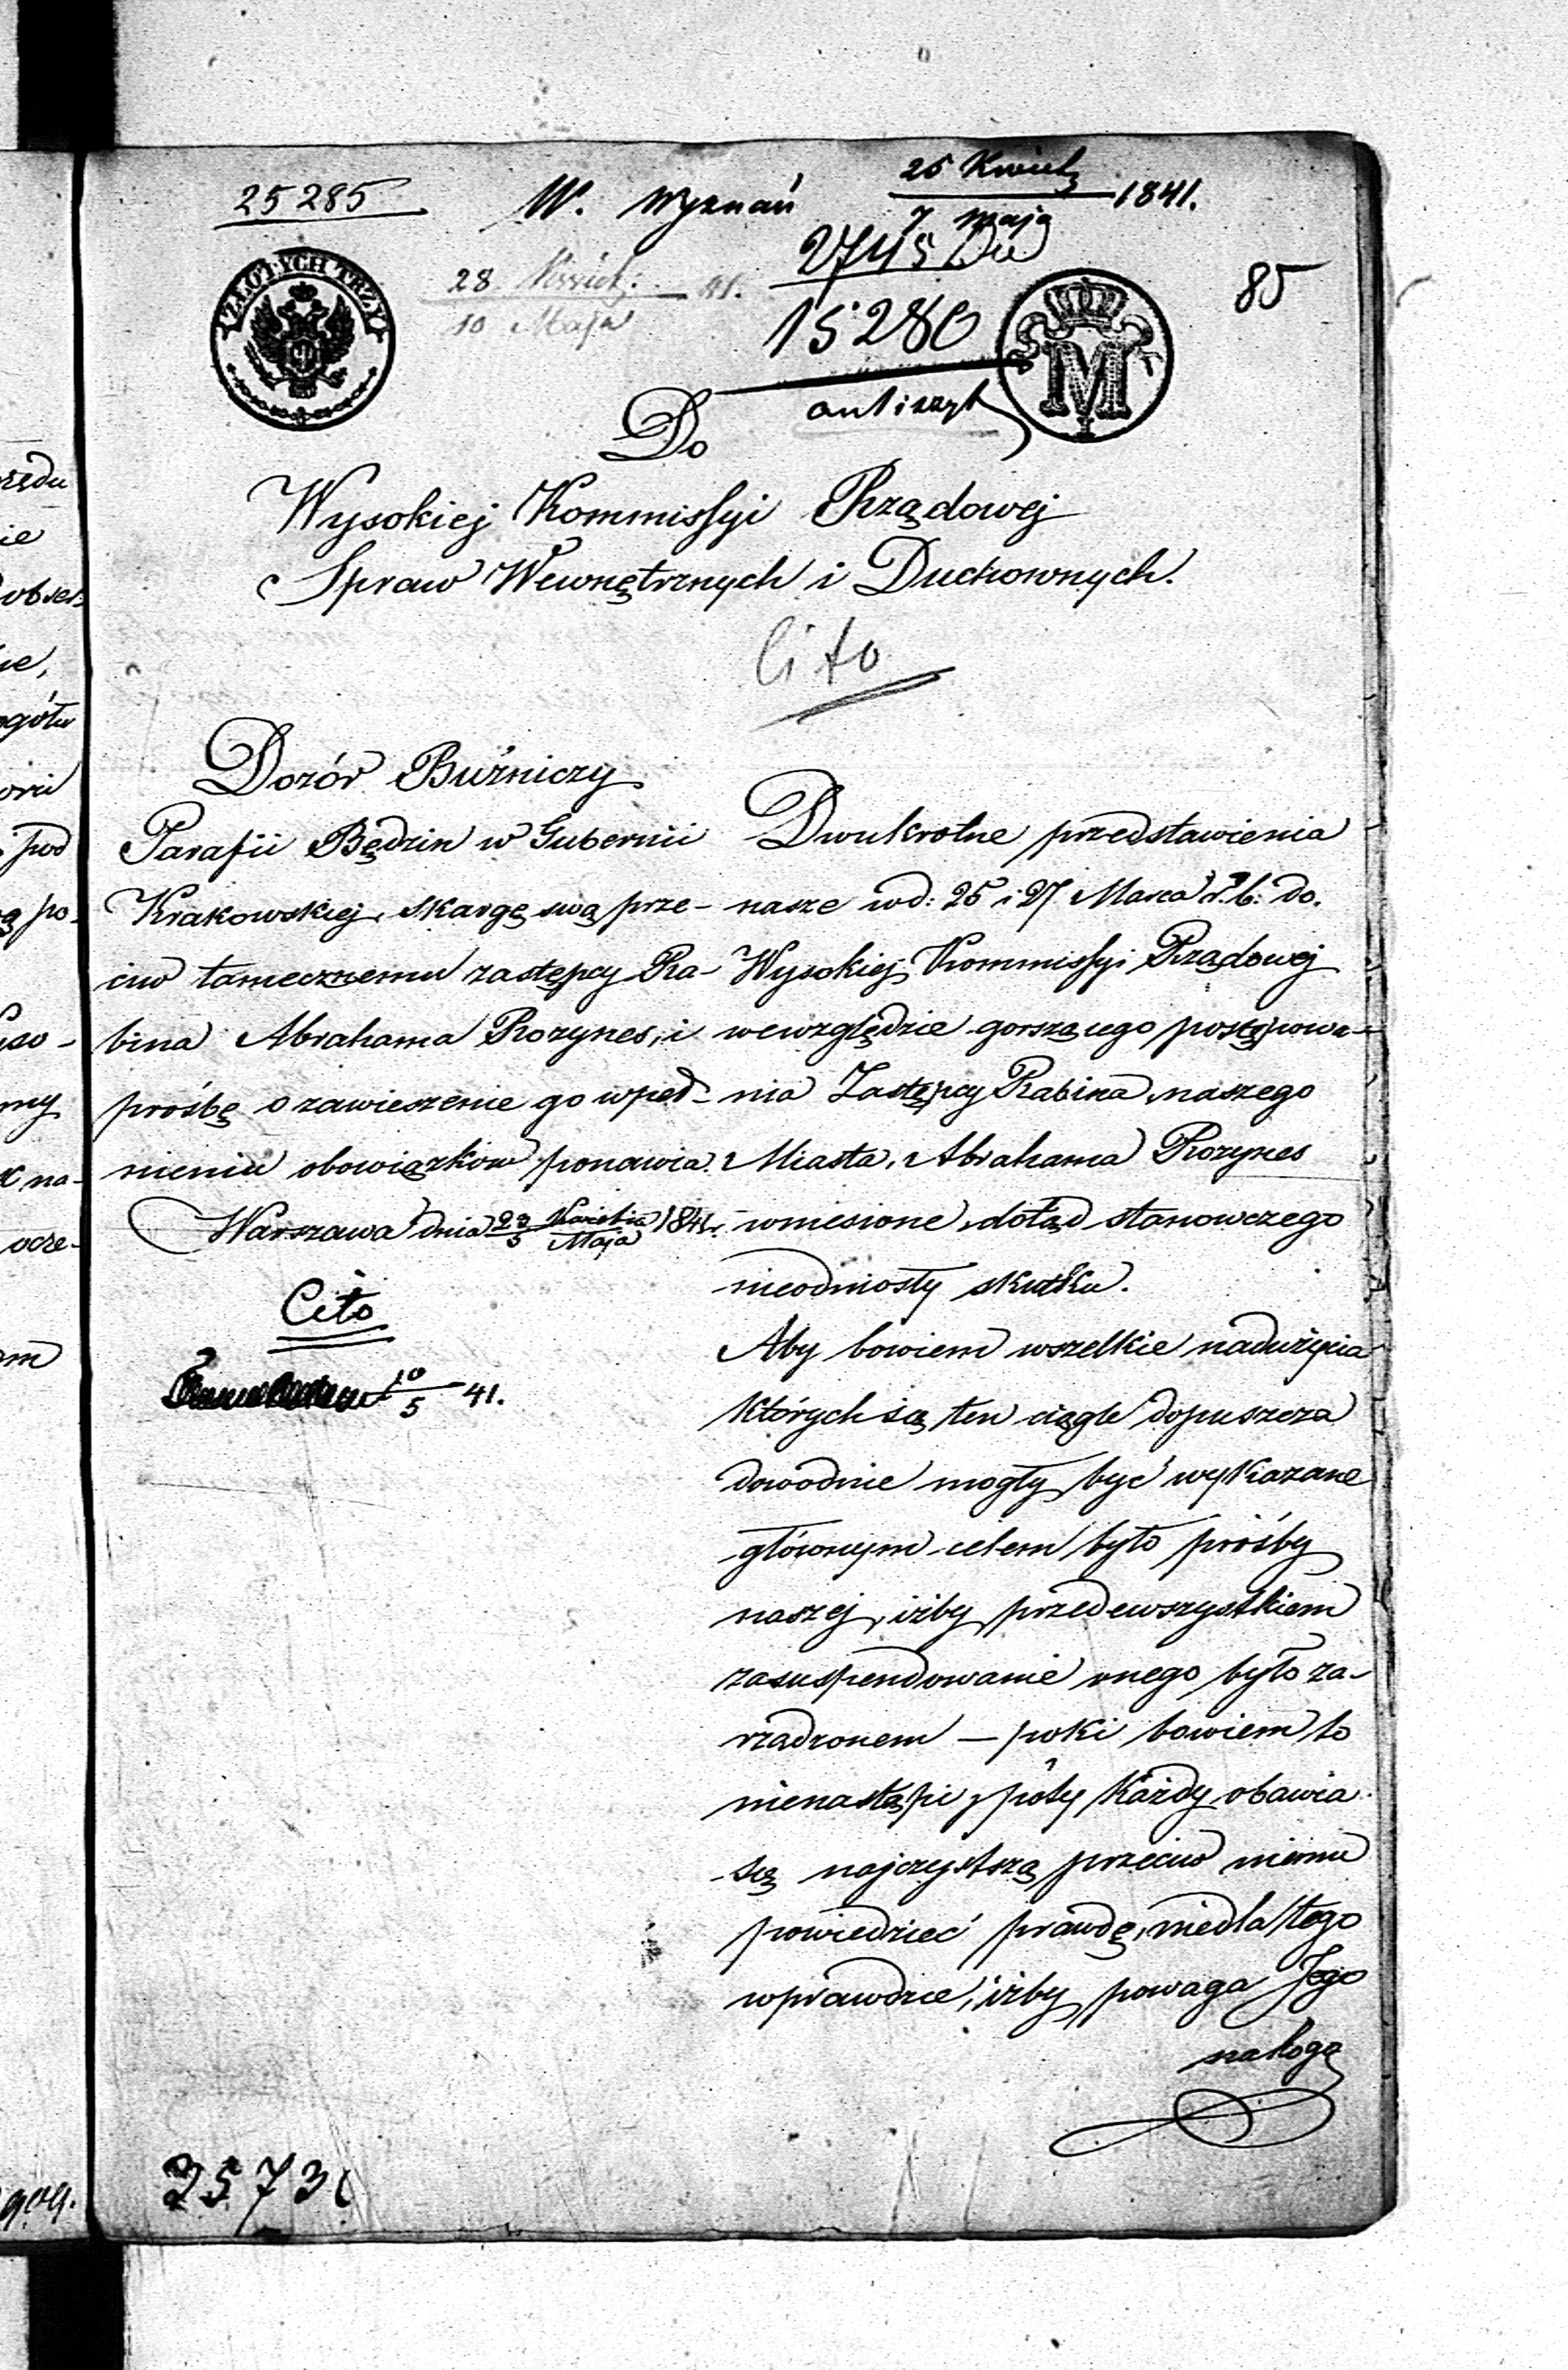 25285
W. Wyznań
25 Kwiet
7 Maja
1841.
28 Kwiet: 41.
10 Maja
2745
15280
85
ZŁOTYCH TRZY
M
Do
Wysokiej Kommissyi Rządowej
Spraw Wewnętrznych i Duchownych.
Cito
Dozór Bużniczy
Parafii Będzin w Gubernii
Krakowskiej, skargę swą prze-
ciw tamecznemu zastępcy Ra-
bina Abrahama Rozynes, i
prośbę o zawieszenie go w peł-
nieniu obowiązków ponawia.
Warszawa dnia 23 Kwietnia 1841.
5 Maja
Cito
10
5 41.
Dwukrotne przedstawienia
nasze w d: 25 i 27 Marca r. b: do.
Wysokiej Kommissyi Rządowej
wewzględzie gorszącego postępowa-
nia Zastępcy Rabina naszego
Miasta, Abrahama Rozynes
wniesione, dotąd stanowczego
nieodniosły skutku.
Aby bowiem wszelkie nadużycia
których się ten ciągle dopuszcza
dowodnie mogły być wykazane
głównym celem było prośby
naszej, iżby przedewszystkiem
zasuspendowanie onego było za-
rządzonem — poki bowiem to
nienastąpi, póty każdy obawia
się najczystszą przeciw niemu
powiedzieć prawdę, niedla tego
wprawdzie, iżby powaga Jego
nałogą
25730